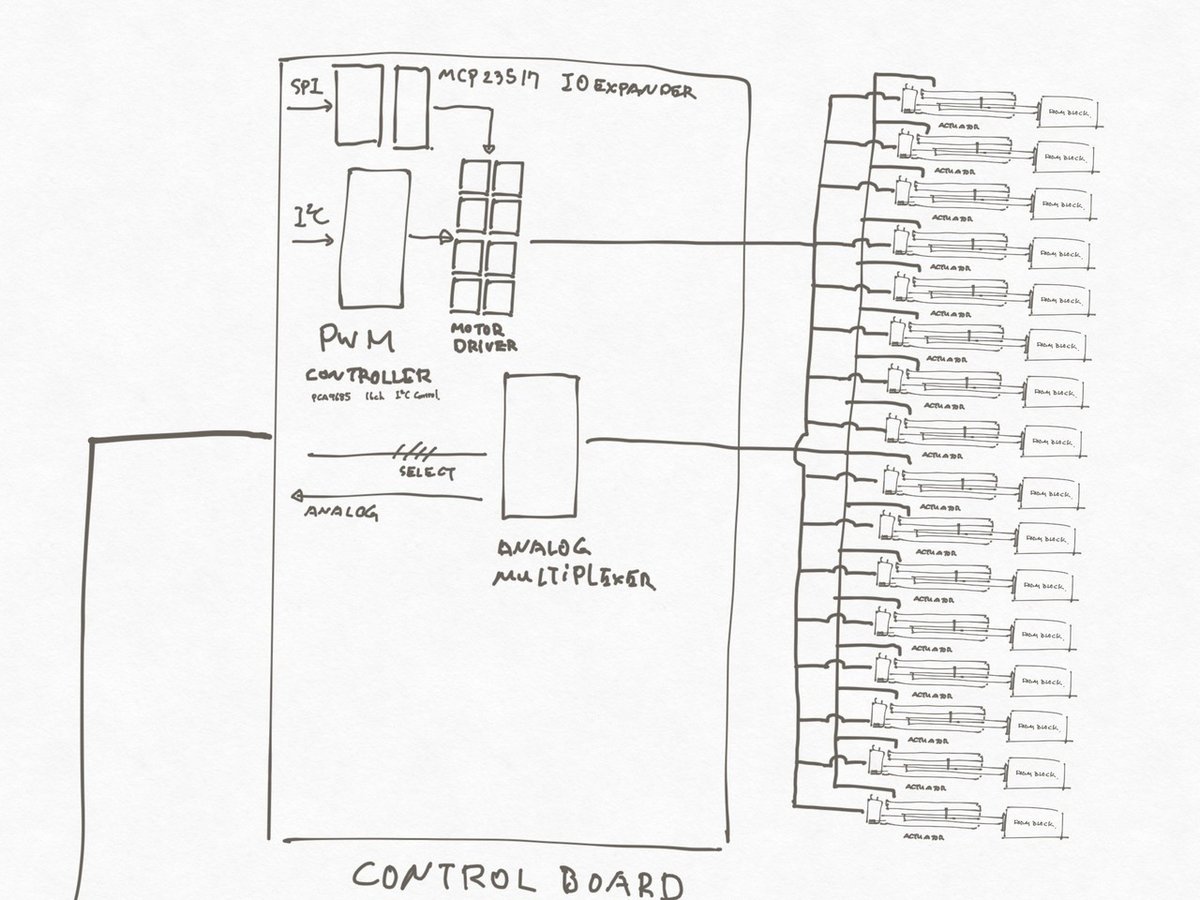 SPI
MCP23S17 IO EXPANDER
I²C
PWM
CONTROLLER
PCA9685 16ch I²C Control.
MOTOR
DRIVER
SELECT
ANALOG
ANALOG
MULTIPLEXER
CONTROL BOARD
FOAM BLOCK.
ACTUATOR
FOAM BLOCK.
ACTUATOR
FOAM BLOCK.
ACTUATOR
FOAM BLOCK.
ACTUATOR
FOAM BLOCK.
ACTUATOR
FOAM BLOCK.
ACTUATOR
FOAM BLOCK.
ACTUATOR
FOAM BLOCK.
ACTUATOR
FOAM BLOCK.
ACTUATOR
FOAM BLOCK.
ACTUATOR
FOAM BLOCK.
ACTUATOR
FOAM BLOCK.
ACTUATOR
FOAM BLOCK.
ACTUATOR
FOAM BLOCK.
ACTUATOR
FOAM BLOCK.
ACTUATOR
FOAM BLOCK.
ACTUATOR